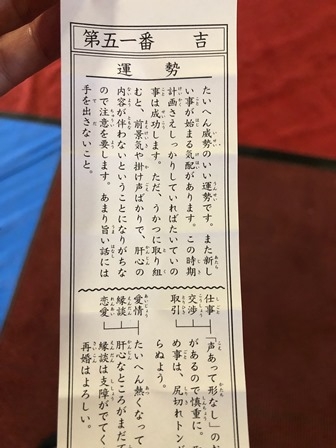 第五一番 吉
運勢
たいへん威勢のいい運勢です。また新し
い事が始まる気配があります。この時期
計画さえしっかりしていればたいていの
事は成功します。ただ、うかつに取り組
むと、前景気や掛け声ばかりで、肝心の
内容が伴わないということになりがちな
ので注意を要します。あまり旨い話には
手を出さないこと。
仕事
交渉
取引
「声あって形なし」の
があるので慎重に。
め事は、尻切れトン
らぬよう。
愛情
縁談
恋愛
たいへん熱くなって
肝心なところがまだ
縁談は支障がでてく
再婚はよろしい。